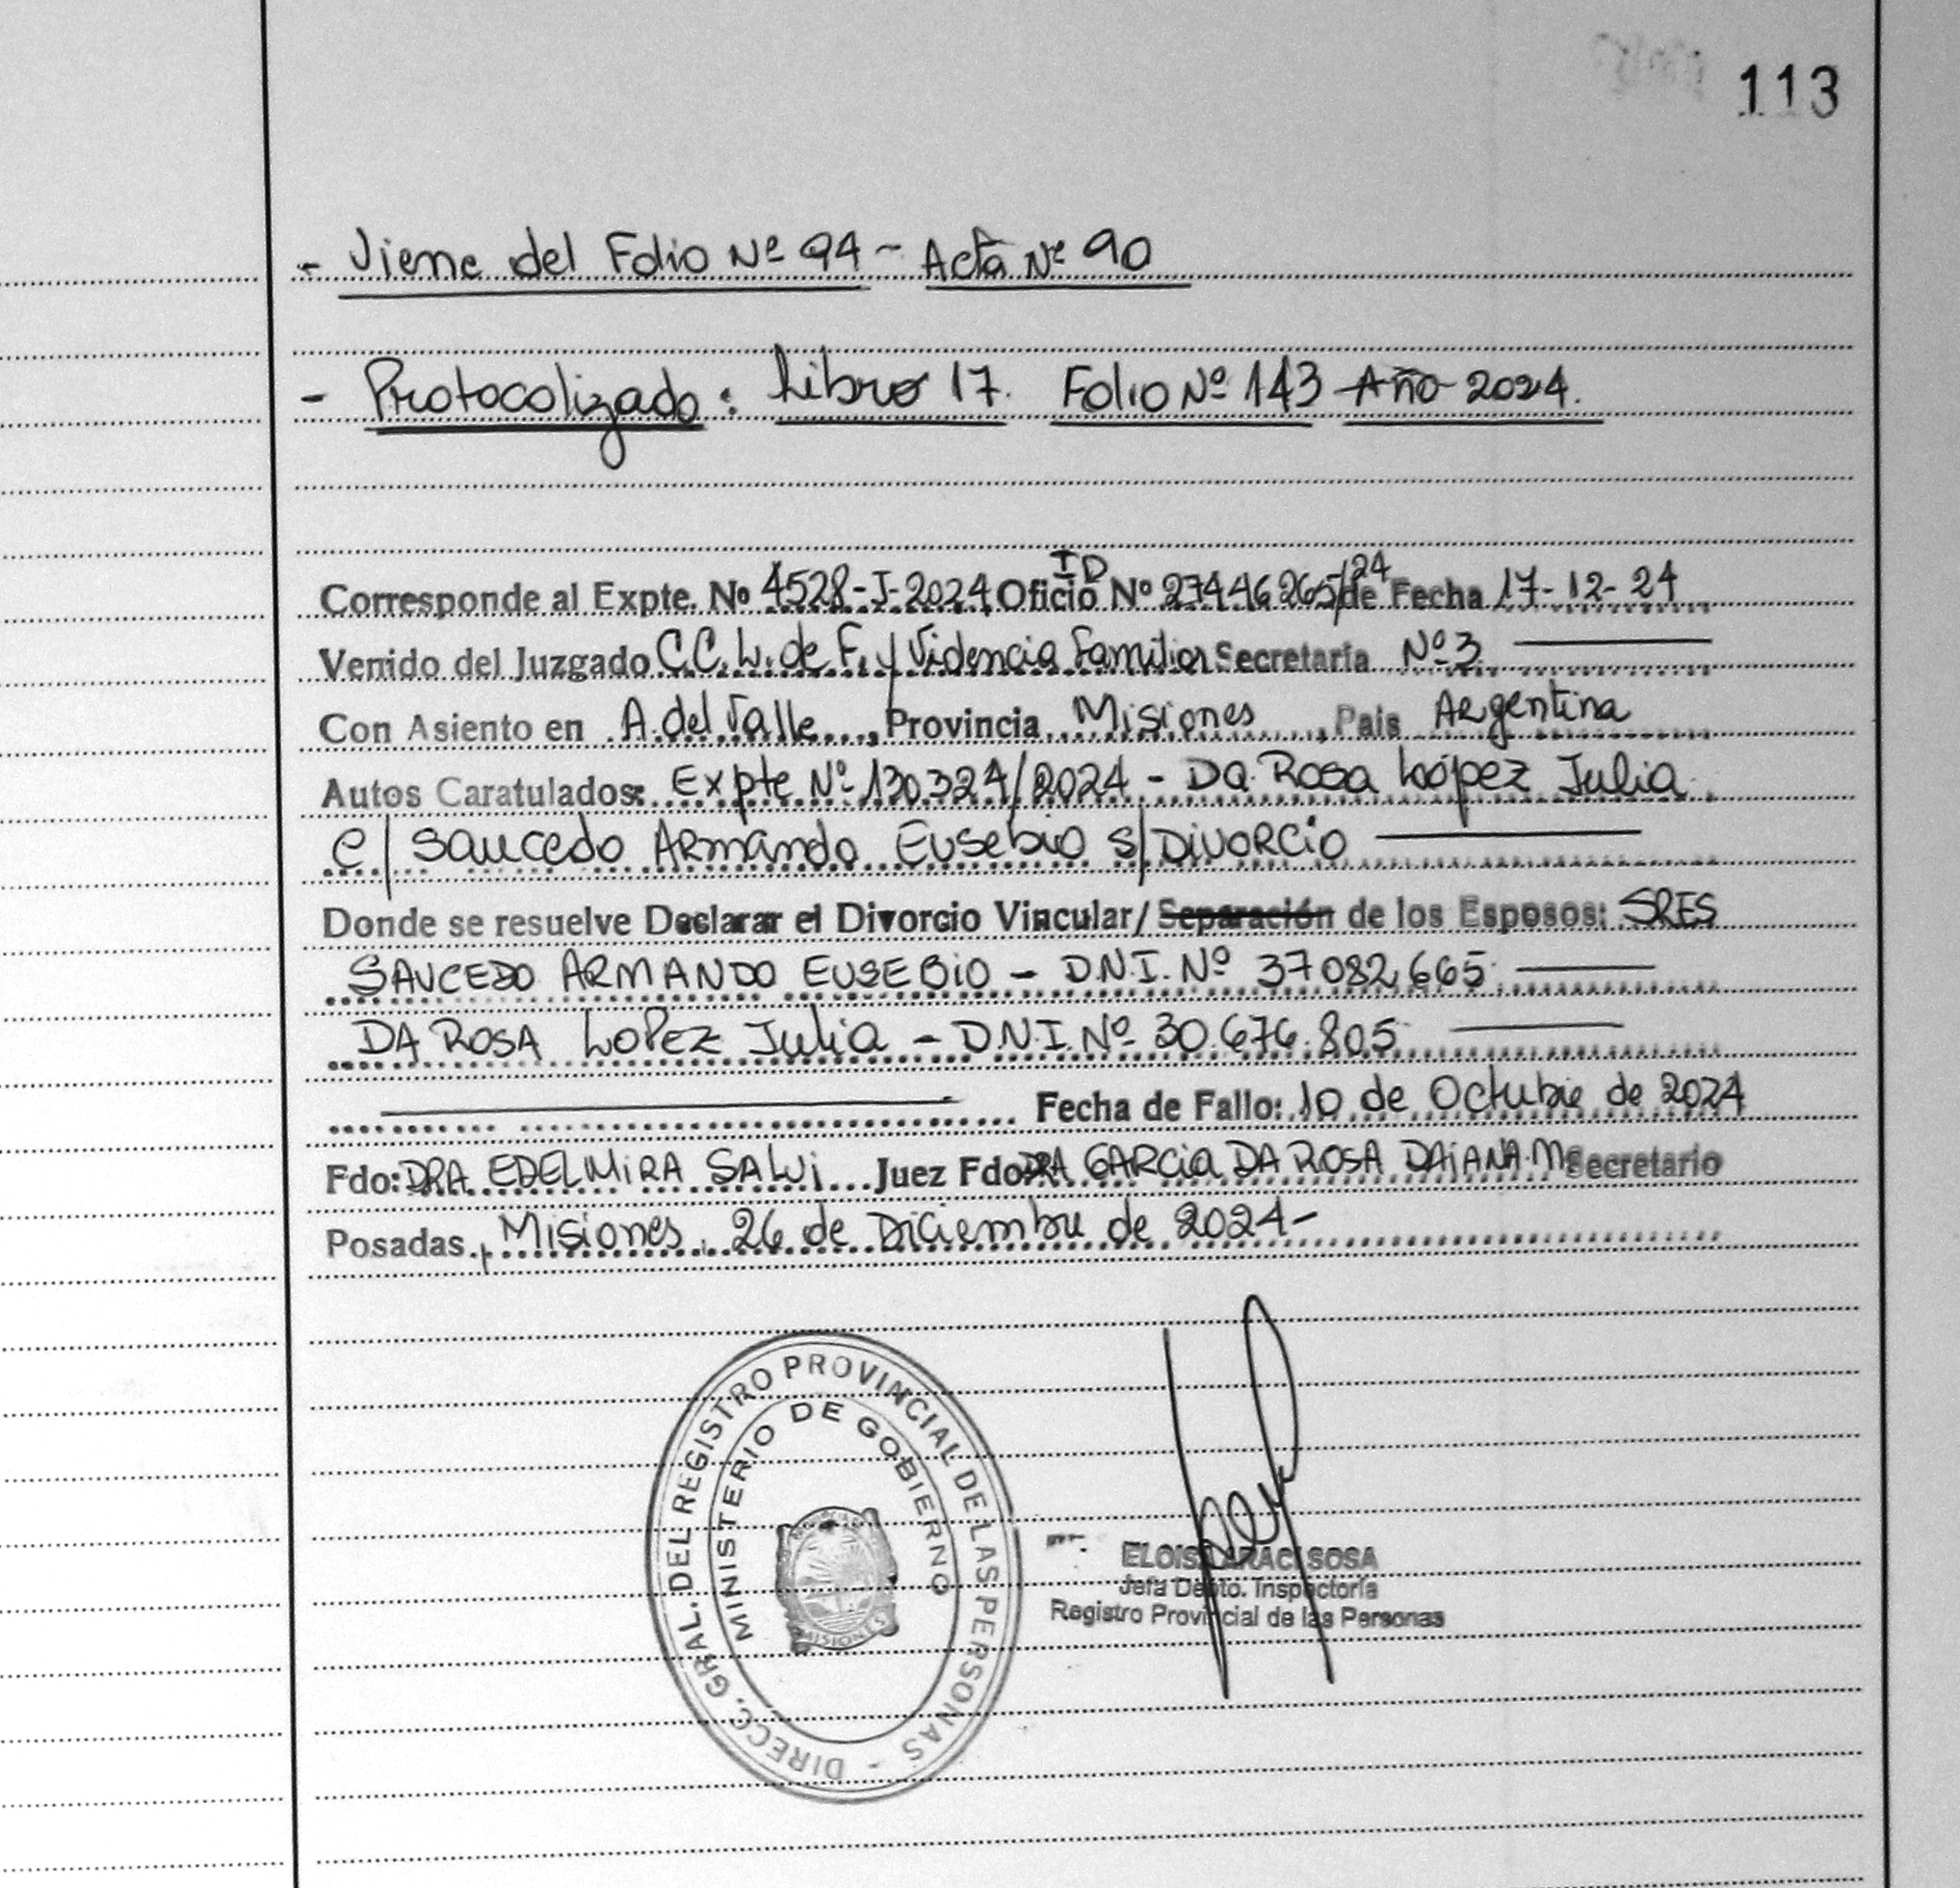 113
- Viene del Folio Nº 94 - Acta Nº 90
- Protocolizado: Libro 17. Folio Nº 143 Año 2024.
Corresponde al Expte. Nº 4528-J-2024 Oficio ID Nº 27446265/24 de Fecha 17-12-24
Venido del Juzgado C.C.L. de F. y Videncia Familiar Secretaría Nº 3
Con Asiento en A. del Valle, Provincia Misiones, Pais Argentina
Autos Caratulados: Expte Nº 130324/2024 - Da Rosa López Julia
C/ Saucedo Armando Eusebio S/ Divorcio
Donde se resuelve Declarar el Divorcio Vincular/ Separación de los Esposos: SRES
SAUCEDO ARMANDO EUSEBIO - D.N.I. Nº 37082,665
DA ROSA LOPEZ Julia - D.N.I. Nº 30.676.805
Fecha de Fallo: 10 de Octubre de 2024
Fdo: DRA EDELMIRA Juez Fdo DRA GARCIA DA ROSA DAIANA M Secretario
Posadas, Misiones, 26 de Diciembre de 2024-
DIRECC. GRAL. DEL REGISTRO PROVINCIAL DE LAS PERSONAS -
MINISTERIO DE GOBIERNO
MISIONES
ELOISA ARACI SOSA
Jefa Depto. Inspectoría
Registro Provincial de las Personas